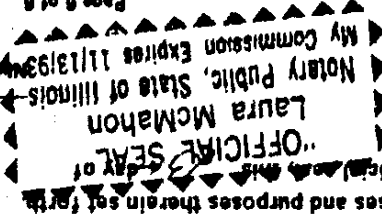 ses and purposes therein set forth
icial seal, this 3 day of
"OFFICIAL SEAL"
Laura McMahon
Notary Public, State of Illinois
My Commission Expires 11/13/93
Page 6 of 6